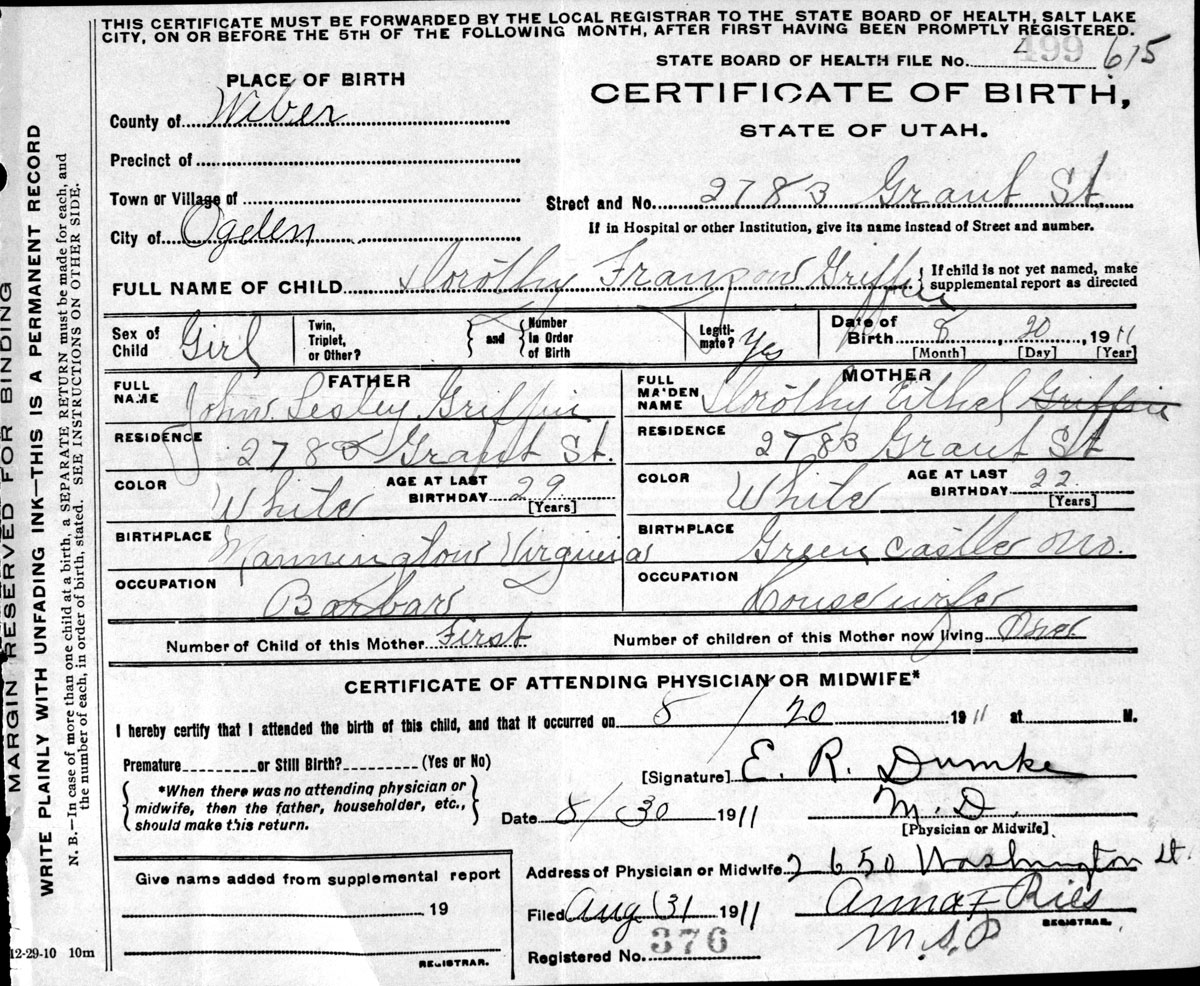 THIS CERTIFICATE MUST BE FORWARDED BY THE LOCAL REGISTRAR TO THE STATE BOARD OF HEALTH, SALT LAKE
CITY, ON OR BEFORE THE 5TH OF THE FOLLOWING MONTH, AFTER FIRST HAVING BEEN PROMPTLY REGISTERED.
STATE BOARD OF HEALTH FILE No. 499 615
PLACE OF BIRTH
CERTIFICATE OF BIRTH,
STATE OF UTAH.
County of Wiber
Precinct of
Town or Village of
Street and No. 2783 Grant St.
City of Ogden
If in Hospital or other Institution, give its name instead of Street and number.
FULL NAME OF CHILD Dorothy Griffin
If child is not yet named, make
supplemental report as directed
Sex of Child Girl
Twin, Triplet, or Other?
and
Number in Order of Birth
Legiti-mate? Yes
Date of Birth 8, 20, 1911
[Month] [Day] [Year]
FATHER
FULL NAME John Lesley Griffin
RESIDENCE 2783 Grant St.
COLOR White
AGE AT LAST BIRTHDAY 29
[Years]
BIRTHPLACE Mannington Virginia
OCCUPATION Barbar
MOTHER
FULL MAIDEN NAME Dorothy Ethel Griffin
RESIDENCE 2783 Grant St
COLOR White
AGE AT LAST BIRTHDAY 22
[Years]
BIRTHPLACE Green castle Mo.
OCCUPATION Housewife
Number of Child of this Mother First
Number of children of this Mother now living One
CERTIFICATE OF ATTENDING PHYSICIAN OR MIDWIFE*
I hereby certify that I attended the birth of this child, and that it occurred on 8/20 1911 at M.
Premature or Still Birth? (Yes or No)
*When there was no attending physician or
midwife, then the father, householder, etc.,
should make this return.
[Signature] E. R. Dumke
M.D.
Date 8/30 1911
[Physician or Midwife]
Address of Physician or Midwife 2650 Washington St.
Filed Aug 31 1911
Anna F Ries
REGISTRAR.
Registered No. 376
Give name added from supplemental report
19
REGISTRAR.
12-29-10 10m
MARGIN RESERVED FOR BINDING
WRITE PLAINLY WITH UNFADING INK—THIS IS A PERMANENT RECORD
N. B.—In case of more than one child at a birth, a SEPARATE RETURN must be made for each, and
the number of each, in order of birth, stated. SEE INSTRUCTIONS ON OTHER SIDE.